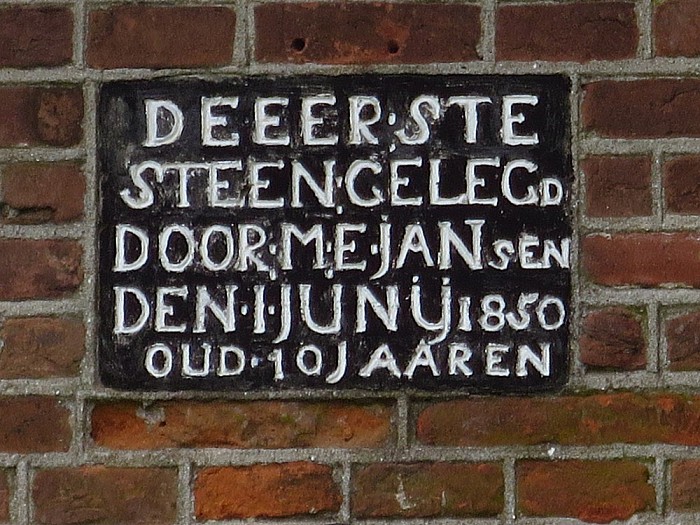 DE EER·STE
STEEN·GELEGD
DOOR·M·E·JANSEN
DEN·1·JUNIJ 1850
OUD·10 JAAREN